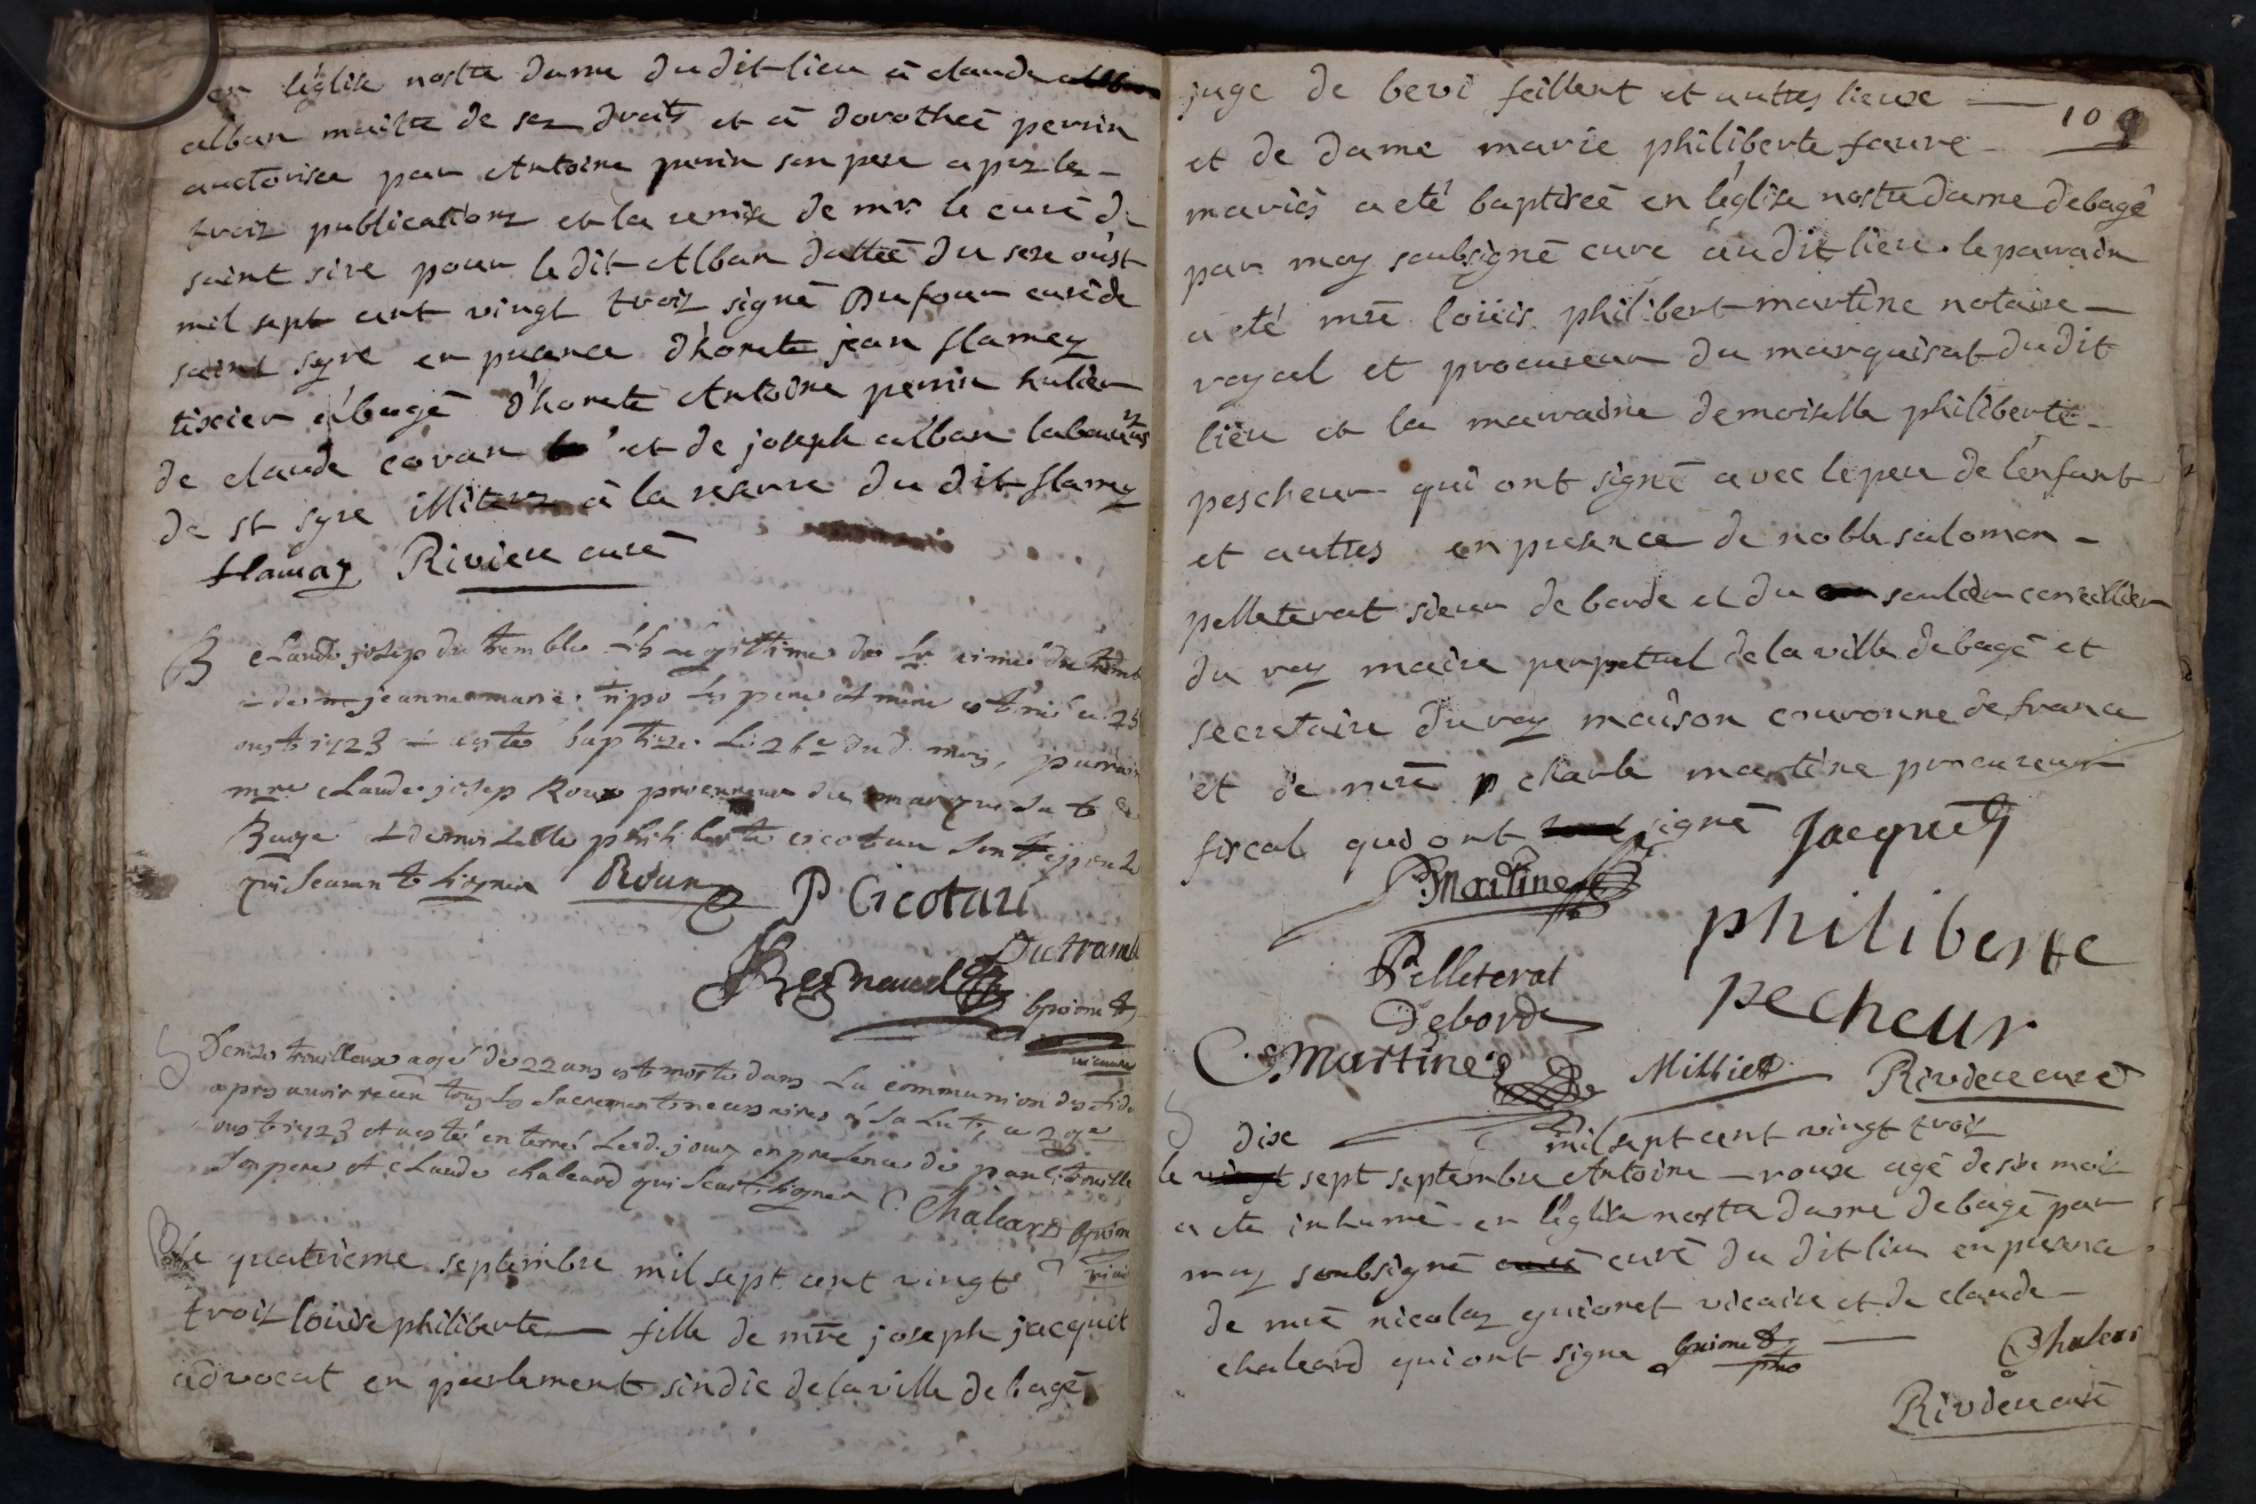 en léglise nostre dame dudit lieu à claude
alban maitre de ses droits et à dorotheé perrin
auctorisee par Antoine perrin son pere apres les
trois publications et la remise de mr. le curé de
saint sire pour ledit Alban dattée du seze oust
mil sept cent vingt trois signé Dufour curé de
saint syre en presence d'honete jean flamey
tixier à bagé d'honete Antoine perrin
de claude et de joseph alban laboureurs
de st syre illiteres à la reserve du dit flamey
flamay Riviere curé
B Claude josep du tremble fils Legittime de Sr aimé du trembl
de jeanne marie les pere et mere est né le 25
oust 1723 et a esté baptizé Le 26e dud. mois, parrain
mre Claude josep Roux procureur du marquisat de
Baugé et demoiselle philiberte cicotau
qui scavent signer Roux P Cicotau
Dutrambl
Regnaud
Guionet
vicaire
S Denise trouilloux agé de 22 ans est morte dans La communion des fidel
apres avoir receu tous Les Sacrements necessaires à Sa Lut, ce 29e
oust 1723 et a esté enterré Led. jour en presence de paul trouille
Son pere et Claude chaleard qui scait signer C. Chaleard Guion
B le quatrieme septembre mil sept cent vingt
trois loüise philiberte fille de mre joseph jacquet
advocat en parlement sindic de la ville de bagé
109
juge de bevi feillent et autres lieux
et de dame marie philiberte faure
mariés a eté baptiseé en léglise nostre dame de bagé
par moy soubsigné curé audit lieu. le parrain
a eté mre loüis philibert martine notaire
royal et procureur du marquisat dudit
lieu et la marraine demoiselle philiberte
pescheur qui ont signé avec le pere de lenfant
et autres en presence de noble salomon
pelleterat sieur de borde et du saulier conseillier
du roy maire perpetuel de la ville de bagé et
secretaire du roy maison couronne de france
et de mre p charle martine procureur
fiscal qui ont signé Jacquet
P. Martine
philiberte
pecheur
Pelleterat
Deborde
C. Martine Milliet Riviere curé
S dix mil sept cent vingt trois
le vingt sept septembre Antoine roux agé de six mois
a eté inhumé en léglise nostre dame de bagé par
moy soubsigné curé curé du dit lieu en presence
de mre nicolas guionet vicaire et de claude
chaleard qui ont signe Guionet Chaleard
Riviere curé